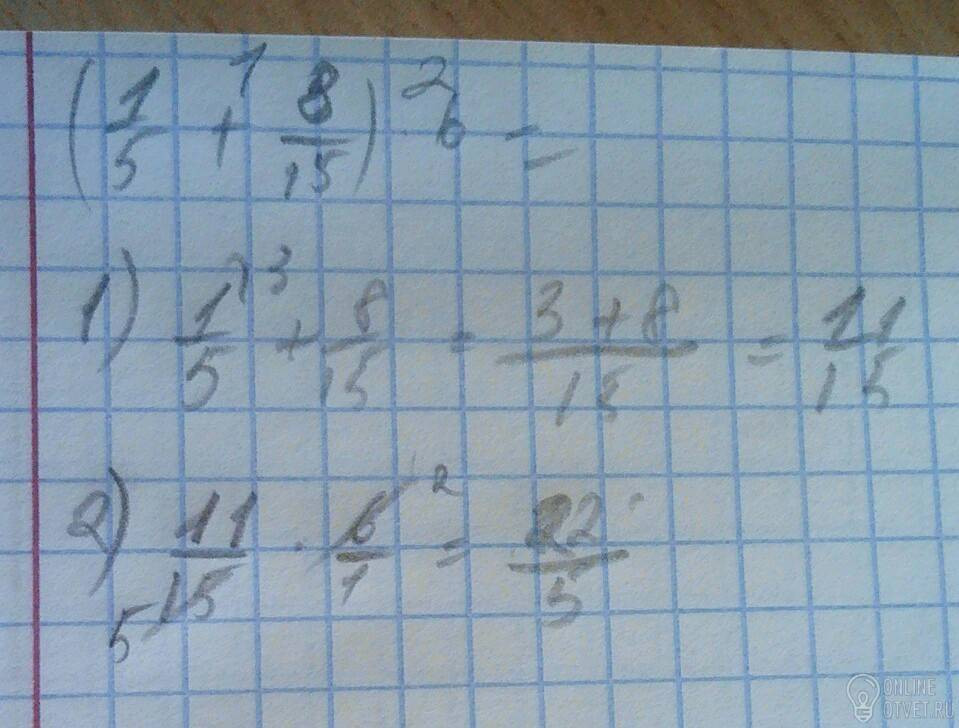 (1/5 + 8/15) · 6 =
1) 1/5 + 8/15 = 3+8/15 = 11/15
2) 11/15 · 6/1 = 22/5
ONLINE
OTVET.RU